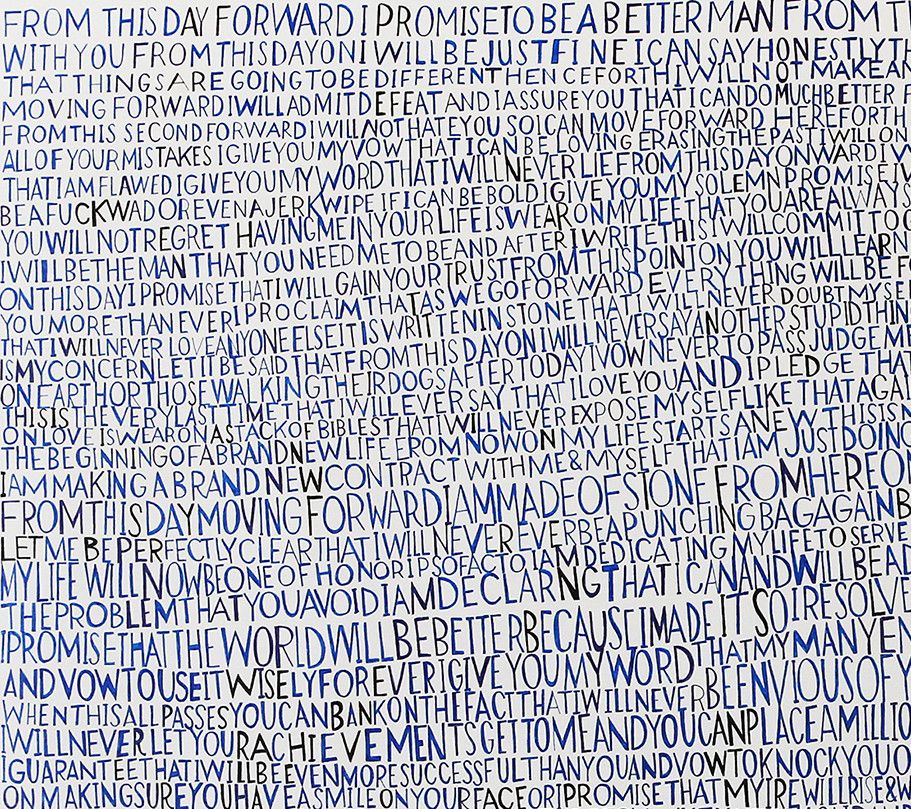 FROM THIS DAY FORWARD I PROMISE TO BE A BETTER MAN FROM T
WITH YOU FROM THIS DAY ON I WILL BE JUST FINE I CAN SAY HONESTLY TH
THAT THINGS ARE GOING TO BE DIFFERENT HENCEFORTH I WILL NOT MAKE AN
MOVING FORWARD I WILL ADMIT DEFEAT AND I ASSURE YOU THAT I CAN DO MUCH BETTER F
FROM THIS SECOND FORWARD I WILL NOT HATE YOU SO I CAN MOVE FORWARD HEREFORTH
ALL OF YOUR MISTAKES I GIVE YOU MY VOW THAT I CAN BE LOVING ERASING THE PAST I WILL ON
THAT I AM FLAWED I GIVE YOU MY WORD THAT I WILL NEVER LIE FROM THIS DAY ONWARD I V
BE A FUCKWAD OR EVEN A JERKWIPE IF I CAN BE BOLD I GIVE YOU MY SOLEMN PROMISE
YOU WILL NOT REGRET HAVING ME IN YOUR LIFE I SWEAR ON MY LIFE THAT YOU ARE ALWAYS
I WILL BE THE MAN THAT YOU NEED ME TO BE AND AFTER I WRITE THIS I WILL COMMIT TO
ON THIS DAY I PROMISE THAT I WILL GAIN YOUR TRUST FROM THIS POINT ON YOU WILL LEARN
YOU MORE THAN EVER I PROCLAIM THAT AS WE GO FORWARD EVERYTHING WILL BE FO
THAT I WILL NEVER LOVE ANYONE ELSE IT IS WRITTEN IN STONE THAT I WILL NEVER DOUBT MYSEL
IS MY CONCERN LET IT BE SAID THAT FROM THIS DAY ON I WILL NEVER SAY ANOTHER STUPID THIN
ON EARTH OR THOSE WALKING THEIR DOGS AFTER TODAY I VOW NEVER TO PASS JUDGEME
THIS IS THE VERY LAST TIME THAT I WILL EVER SAY THAT I LOVE YOU AND I PLEDGE THAT
ON LOVE I SWEAR ON A STACK OF BIBLES THAT I WILL NEVER EXPOSE MYSELF LIKE THAT AGAI
THE BEGINNING OF A BRAND NEW LIFE FROM NOW ON MY LIFE STARTS ANEW THIS IS N
I AM MAKING A BRAND NEW CONTRACT WITH ME & MYSELF THAT I AM JUST DOING
FROM THIS DAY MOVING FORWARD I AM MADE OF STONE FROM HERE ON
LET ME BE PERFECTLY CLEAR THAT I WILL NEVER EVER BE A PUNCHING BAG AGAIN B
MY LIFE WILL NOW BE ONE OF HONOR IPSO FACTO I AM DEDICATING MY LIFE TO SERVE
THE PROBLEM THAT YOU AVOID I AM DECLARNG THAT I CAN AND WILL BE AD
I PROMISE THAT THE WORLD WILL BE BETTER BECAUSE I MADE IT SO I RESOLVE
AND VOW TO USE IT WISELY FOREVER I GIVE YOU MY WORD THAT MY MANY EN
WHEN THIS ALL PASSES YOU CAN BANK ON THE FACT THAT I WILL NEVER BE ENVIOUS OF Y
I WILL NEVER LET YOUR ACHIEVEMENTS GET TO ME AND YOU CAN PLACE A MILLIO
I GUARANTEE THAT I WILL BE EVEN MORE SUCCESSFUL THAN YOU AND VOW TO KNOCK YOU O
ON MAKING SURE YOU HAVE A SMILE ON YOUR FACE OR I PROMISE THAT MY IRE WILL RISE & W